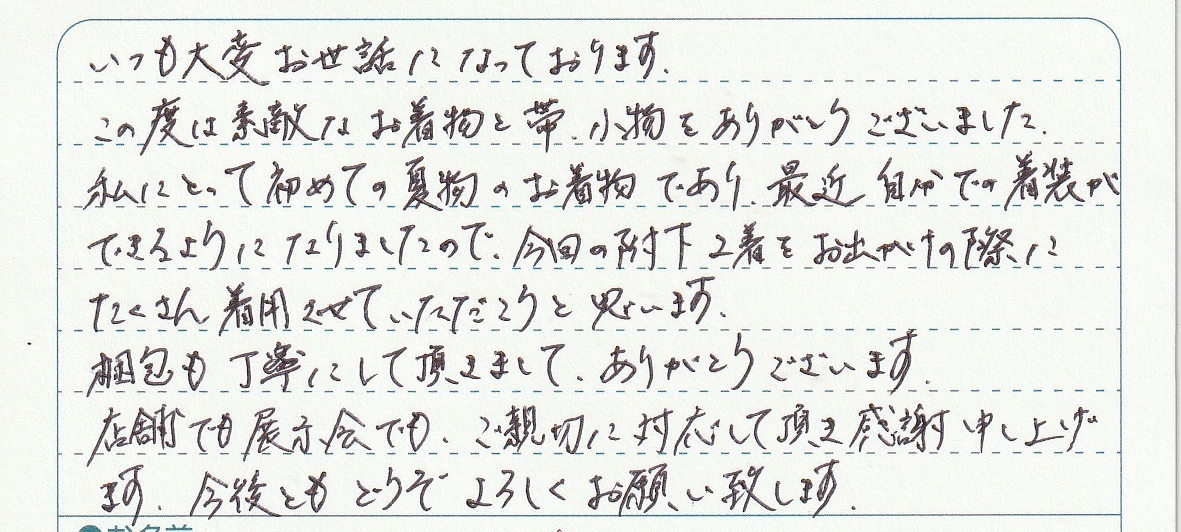 いつも大変お世話になっております。
この度は素敵なお着物と帯、小物をありがとうございました。
私にとって初めての夏物のお着物であり、最近自分での着装が
できるようになりましたので、今回の附下2着をお出かけの際に
たくさん着用させていただこうと思います。
梱包も丁寧にして頂きまして、ありがとうございます。
店舗でも展示会でも、ご親切に対応して頂き感謝申し上げ
ます。今後ともどうぞよろしくお願い致します。